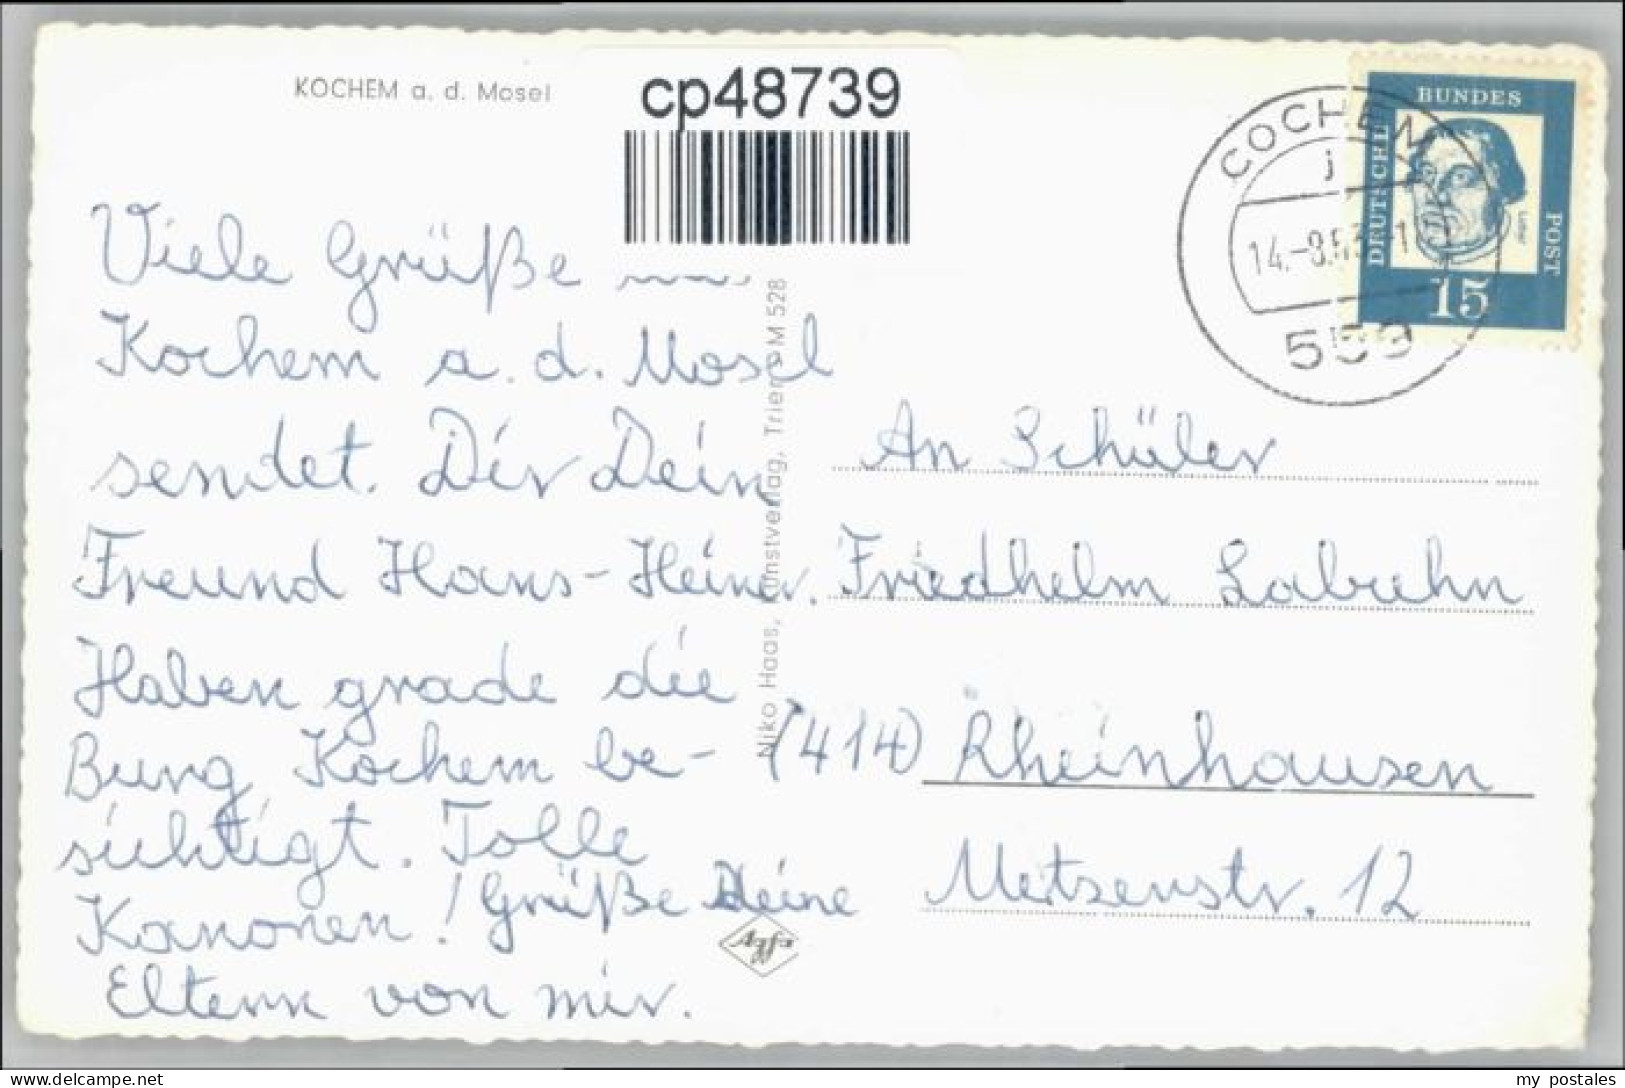 KOCHEM a. d. Mosel
cp48739
Viele Grüße
Kochem a. d. Mosel
sendet Dir Dein
Freund Hans-Heiner.
Haben grade die
Burg Kochem be-
sichtigt. Tolle
Kanonen! Grüße Deine
Eltern von mir.
Niko Haas, Kunstverlag, Trier M 528
Agfa
COCHEM
j
14.-8.
559
DEUTSCHE
BUNDES
POST
Luther
15
An Schüler
Friedhelm Labuhn
(414) Rheinhausen
Metzenstr. 12
my_postales